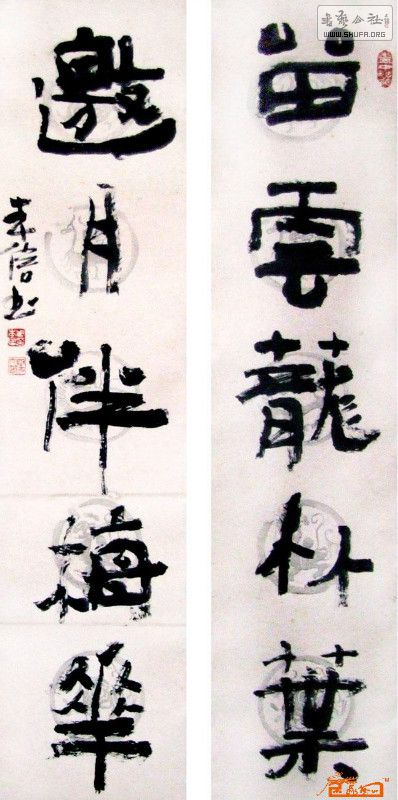 留雲蘢竹葉
邀月伴梅華
书艺公社
WWW.SHUFA.ORG